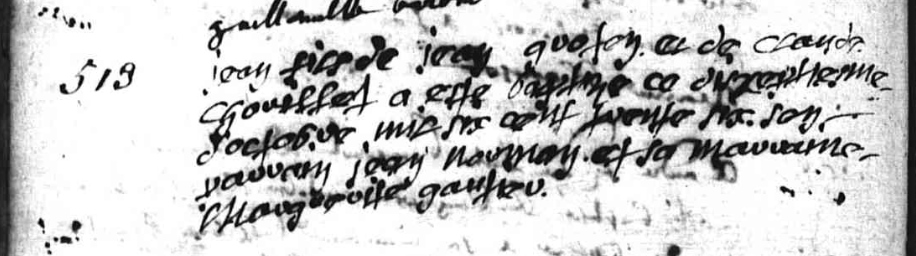 519
jean fils de jean quoten et de claude
chouillet a este baptise ce dixseptiesme
d'octobre mil six cent trente six son
parrain jean normen et sa marraine
Marguerite gautier.